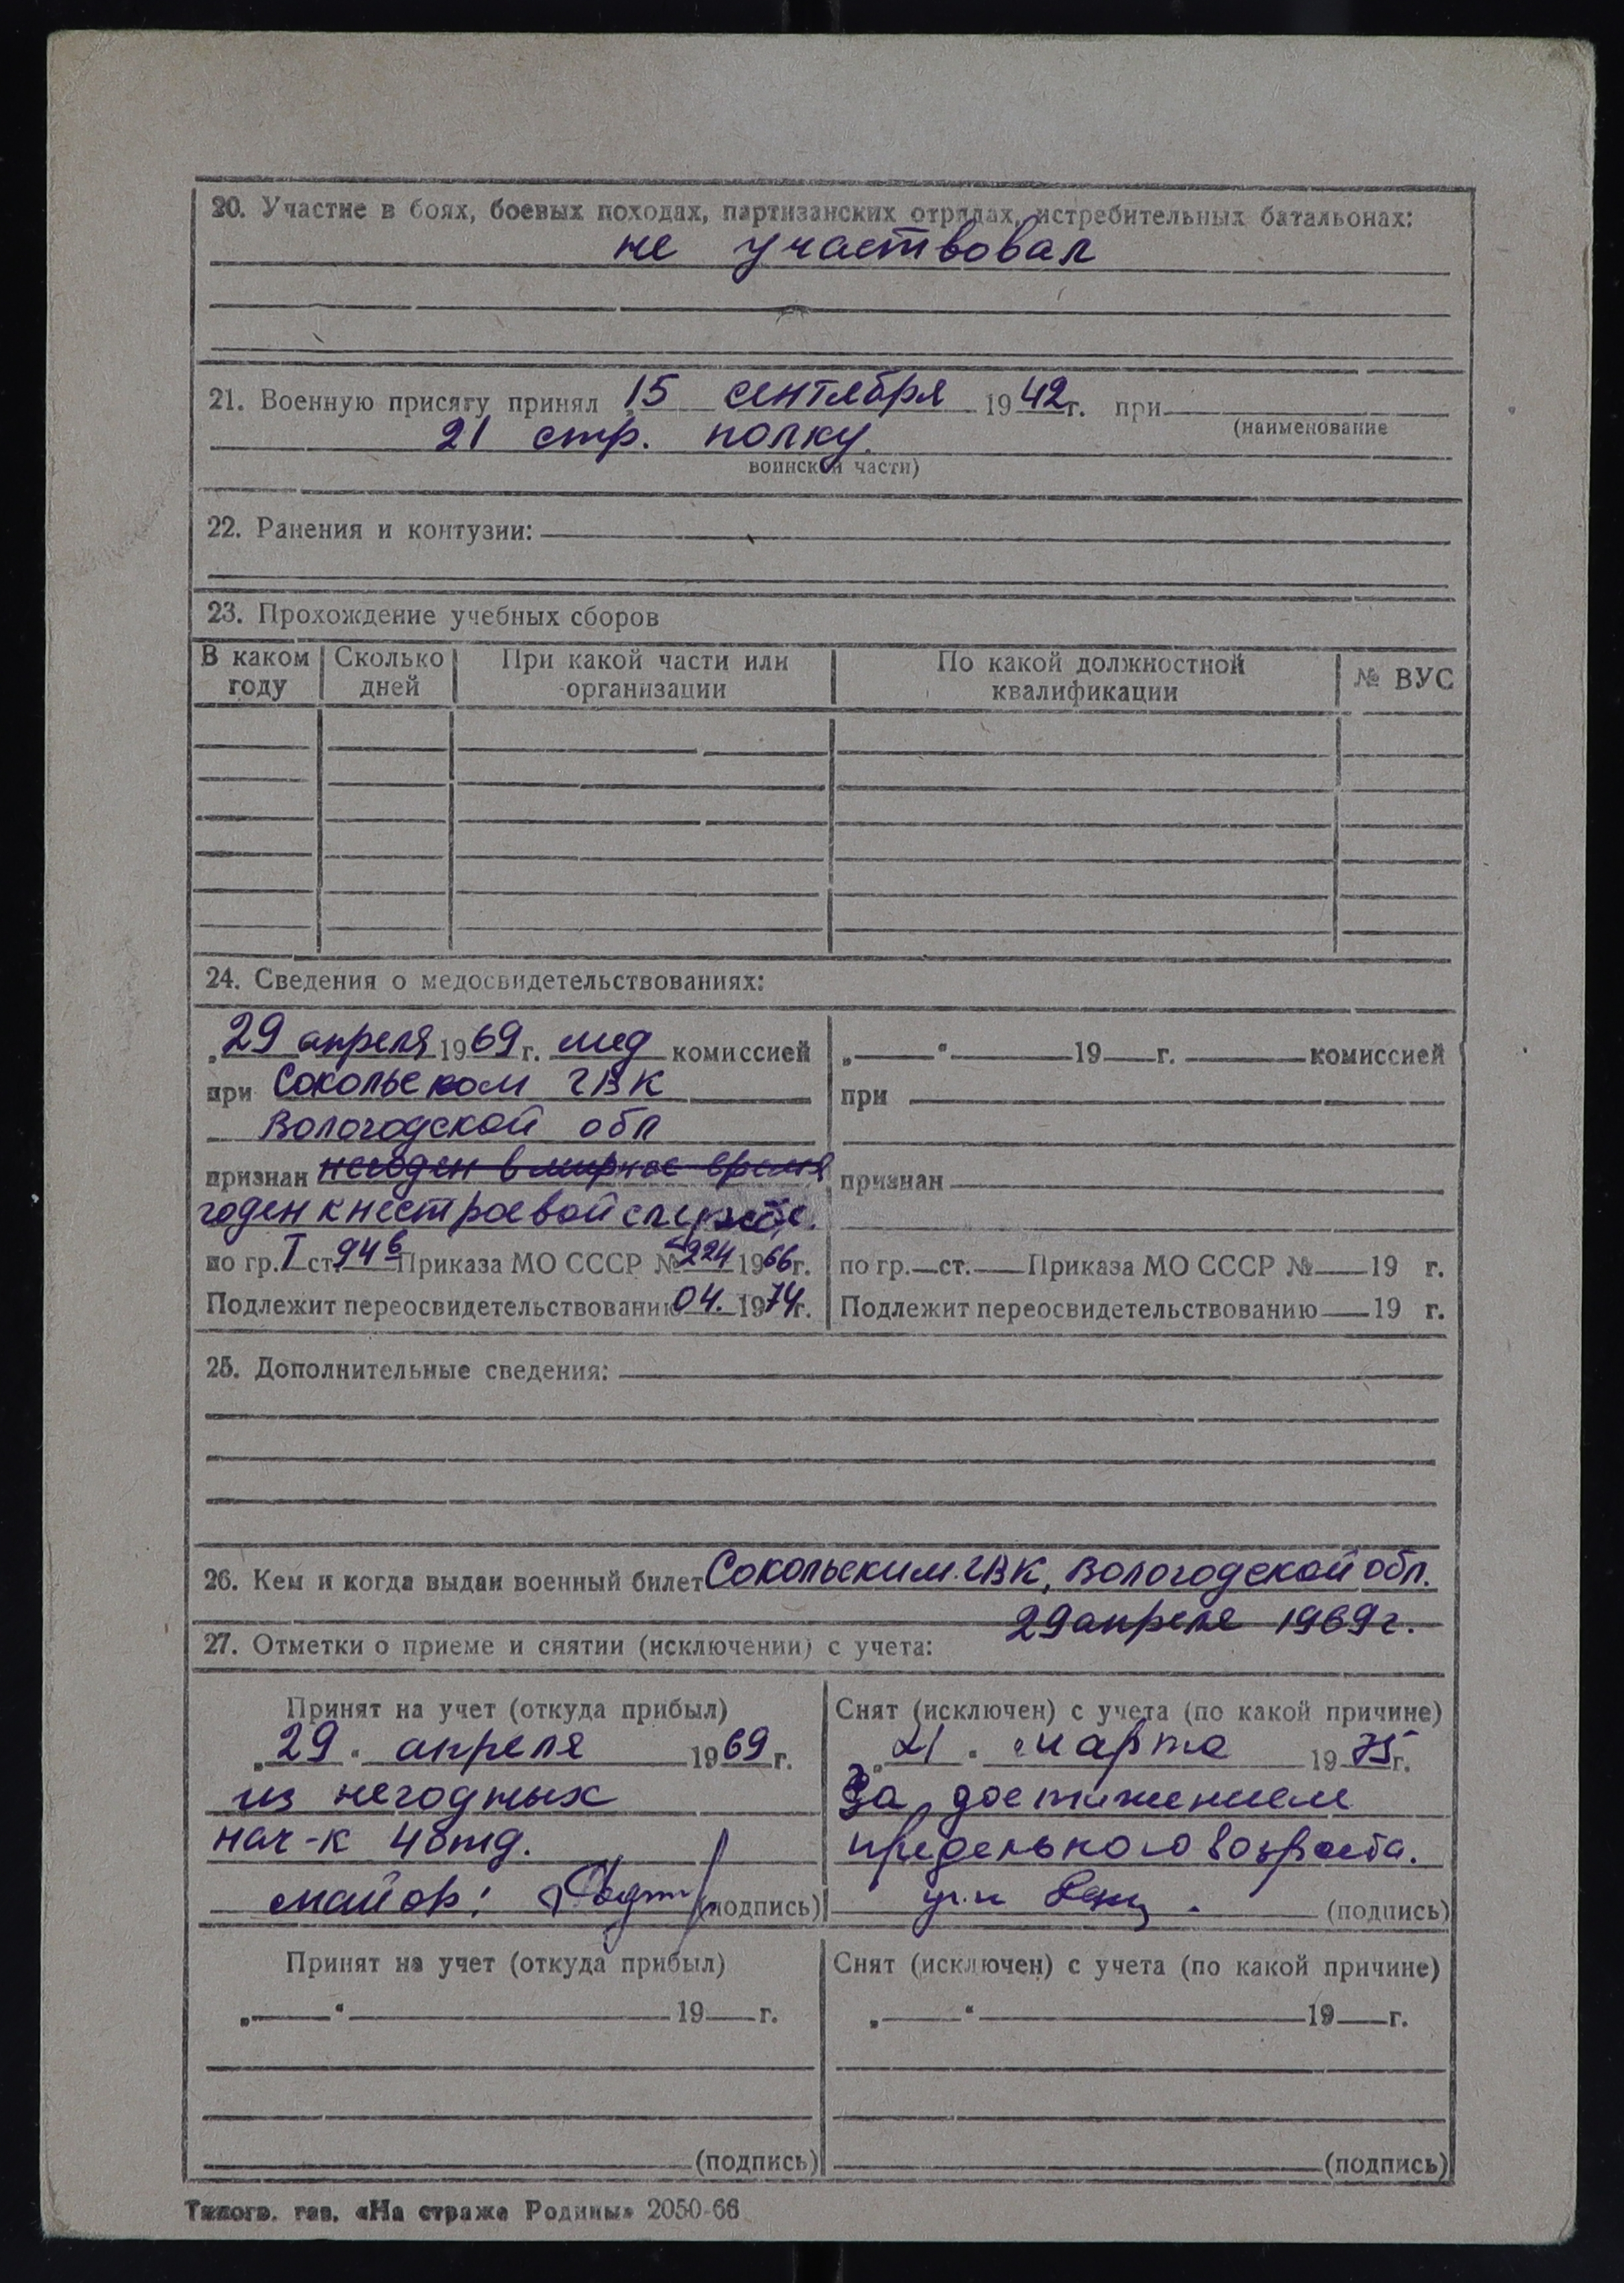 20. Участие в боях, боевых походах, партизанских отрядах, истребительных батальонах:
не участвовал
21. Военную присягу принял „15 сентября 1942 г. при
(наименование
21 стр. полку.
воинской части)
22. Ранения и контузии:
23. Прохождение учебных сборов
В каком году | Сколько дней | При какой части или организации | По какой должностной квалификации | № ВУС
24. Сведения о медосвидетельствованиях:
„29 апреля 1969 г. мед комиссией
при Сокольском ГВК
Вологодской обл
признан негоден в мирное время
годен к нестроевой службе.
по гр. I ст. 94 б Приказа МО СССР № 224 1966 г.
Подлежит переосвидетельствованию 04. 1974 г.
„ “ 19 г. комиссией
при
признан
по гр. ст. Приказа МО СССР № 19 г.
Подлежит переосвидетельствованию 19 г.
25. Дополнительные сведения:
26. Кем и когда выдан военный билет Сокольским ГВК, Вологодской обл.
29 апреля 1969 г.
27. Отметки о приеме и снятии (исключении) с учета:
Принят на учет (откуда прибыл)
„29“ апреля 1969 г.
из негодных
нач-к 4 отд.
майор: (подпись)
Снят (исключен) с учета (по какой причине)
„21“ марта 1975 г.
За достижением
предельного возраста.
(подпись)
Принят на учет (откуда прибыл)
„ “ 19 г.
(подпись)
Снят (исключен) с учета (по какой причине)
„ “ 19 г.
(подпись)
Типогр. газ. «На страже Родины» 2050-66